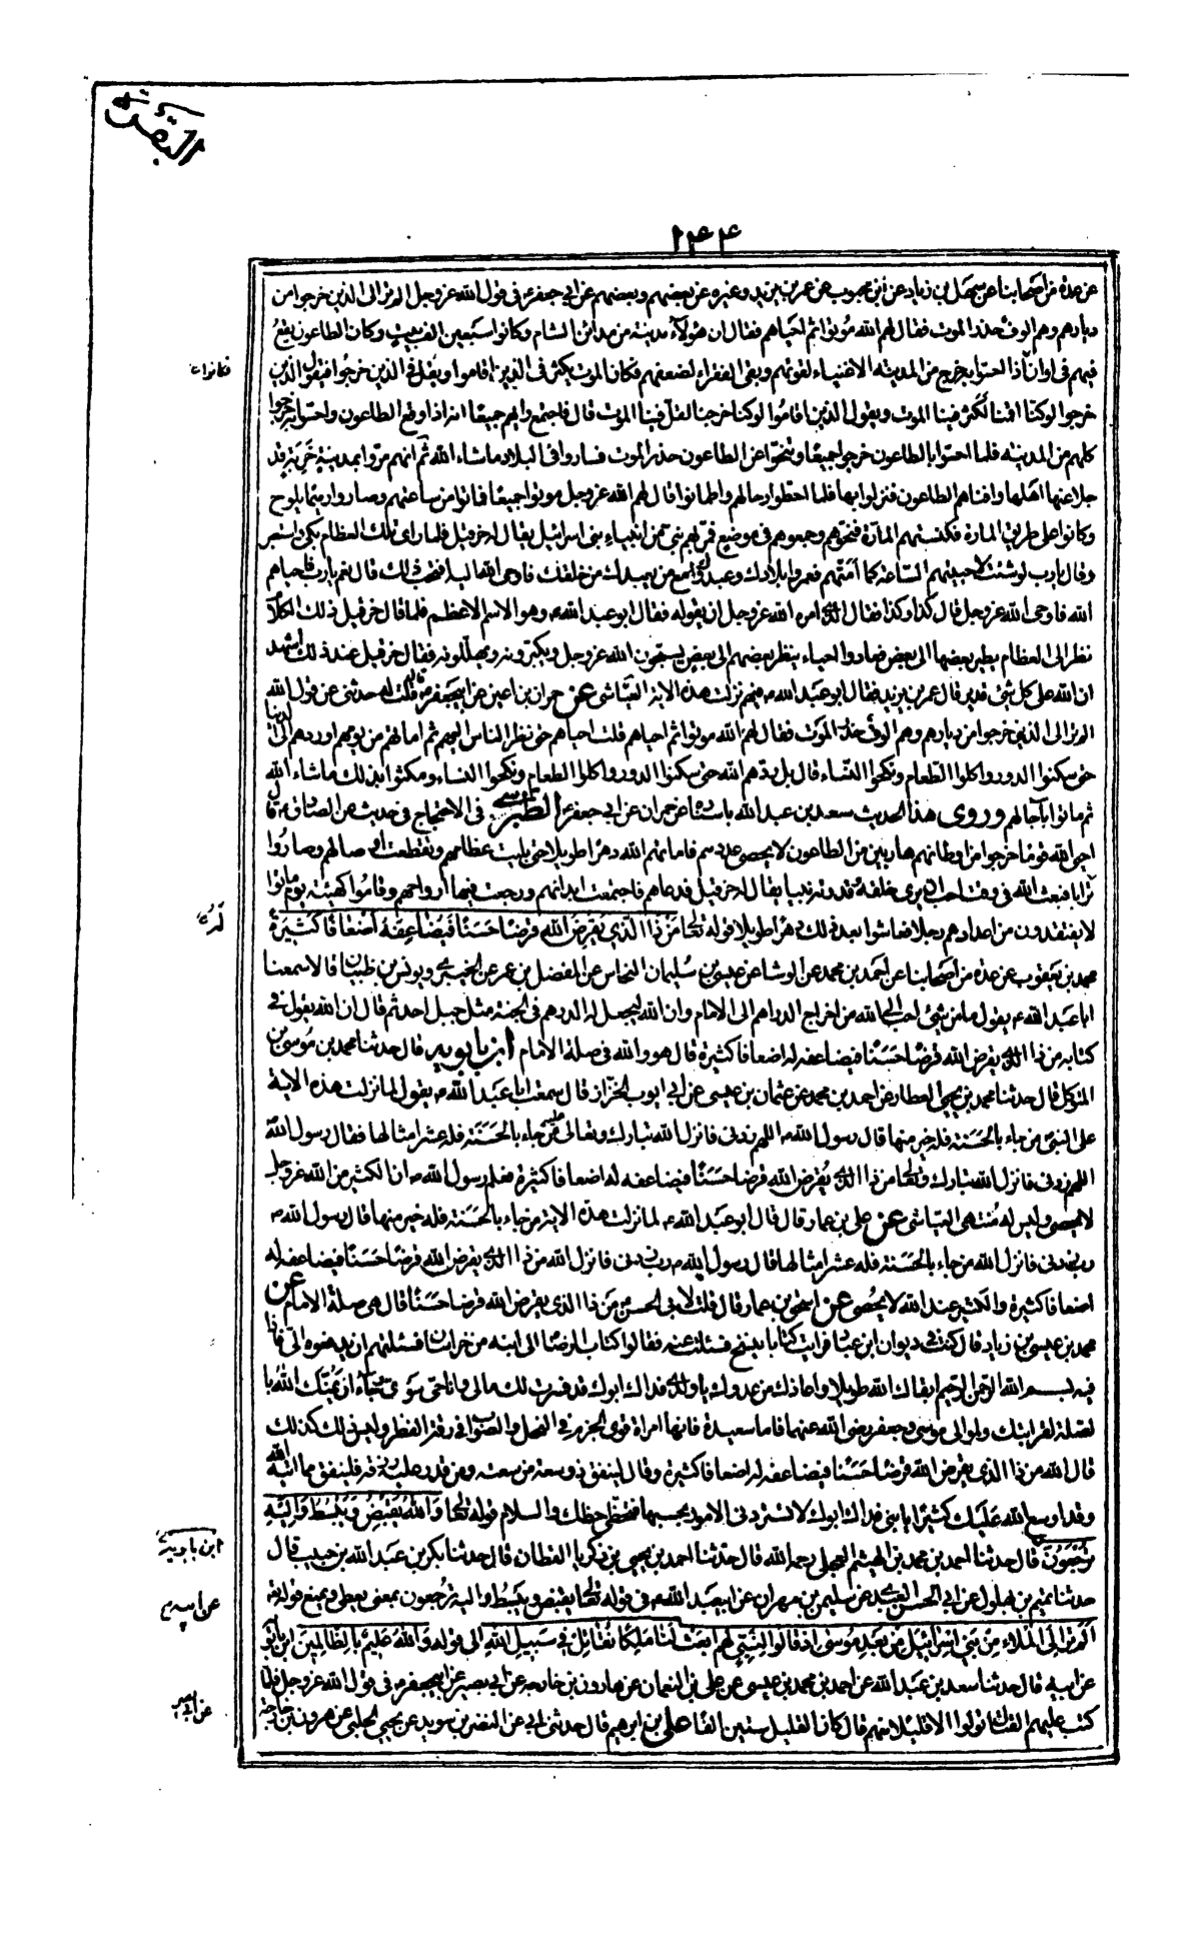 البقرة
١٤٤
عن عدة من اصحابنا عن سهل بن زياد عن ابن محبوب عن عمر بن يزيد وغيره عن بعضهم وبعضهم عن ابي جعفر ع في قول الله عز وجل الم تر الى الذين خرجوا من
ديارهم وهم الوف حذر الموت فقال لهم الله موتوا ثم احياهم فقال ان هؤلاء مدينة من مدائن الشام وكانوا سبعين الف بيت وكان الطاعون يقع
فيهم في اوان اذا احتوا يخرج من المدينه الاغنياء لقوتهم وبقى الفقراء لضعفهم فكان الموت يكثر في الذين اقاموا ويقل في الذين خرجوا فيقول الذين
فكانوا
خرجوا لوكنا اقمنا لكثر فينا الموت ويقول الذين اقاموا لوكنا خرجنا لقل فينا الموت قال فاجتمع رايهم جميعا انه اذا وقع الطاعون واحتوا به خرجوا
كلهم من المدينه فلما احتوا بالطاعون خرجوا جميعا وتنحوا عن الطاعون حذر الموت فساروا في البلاد ماشاء الله ثم انهم مروا بمدينة خربة قد
جلا عنها اهلها وافناهم الطاعون فنزلوا بها فلما احطوا رحالهم واطمانوا قال لهم الله عز وجل موتوا جميعا فماتوا من ساعتهم وصاروا رميما يلوح
وكانوا على طريق المارة فكنستهم المارة فنحوهم وجمعوهم في موضع فمر بهم نبي من انبياء بني اسرائيل يقال له حزقيل فلما راى تلك العظام بكى واستعبر
وقال يارب لوشئت لاحييتهم الساعة كما امتهم فعمروا بلادك وعبدوك مع من يعبدك من خلقك فاوحى الله اليه افتحب ذلك قال نعم يارب فاحياهم
الله فاوحى الله عز وجل قال كذا وكذا فقال الذي امره الله عز وجل ان يقوله فقال ابو عبد الله ع وهو الاسم الاعظم فلما قال حزقيل ذلك الكلام
نظر الى العظام يطير بعضها الى بعض فعادوا احياء ينظر بعضهم الى بعض يسبحون الله عز وجل ويكبرونه ويهللونه فقال حزقيل عند ذلك اشهد
ان الله على كل شئ قدير قال عمر بن يزيد فقال ابو عبد الله ع فيهم نزلت هذه الاية العياشي عن حمران بن اعين عن ابي جعفر ع قال قلت له حدثني عن قول الله
الم تر الى الذين خرجوا من ديارهم وهم الوف حذر الموت فقال لهم الله موتوا ثم احياهم قلت احياهم حتى نظر الناس اليهم ثم اماتهم من يومهم او ردهم الى الدنيا
حتى سكنوا الدور واكلوا الطعام ونكحوا النساء قال بل ردهم الله حتى سكنوا الدور واكلوا الطعام ونكحوا النساء ومكثوا بذلك ماشاء الله
ثم ماتوا بآجالهم وروى هذا الحديث سعد بن عبد الله باسناده عن حمران عن ابي جعفر ع الطبرسي في الاحتجاج في حديث عن الصادق ع قال
احيى الله قوما خرجوا من اوطانهم هاربين من الطاعون لا يحصى عددهم فاماتهم الله دهرا طويلا حتى بليت عظامهم وتقطعت اوصالهم وصاروا
ترابا فبعث الله في وقت احب ان يرى خلقه قدرته نبيا يقال له حزقيل فدعاهم فاجتمعت ابدانهم ورجعت فيها ارواحهم وقاموا كهيئة يوم ماتوا
لا يفتقدون من اعدادهم رجلا فعاشوا بعد ذلك دهرا طويلا قوله تعالى من ذا الذي يقرض الله قرضا حسنا فيضاعفه له اضعافا كثيرة
محمد بن يعقوب عن عدة من اصحابنا عن احمد بن محمد عن الوشا عن عيسى بن سليمان النحاس عن المفضل بن عمر عن الخيبري ويونس بن ظبيان قالا سمعنا
ابا عبد الله ع يقول مامن شئ احب الى الله من اخراج الدراهم الى الامام وان الله ليجعل له الدرهم في الجنة مثل جبل احد ثم قال ان الله يقول في
كتابه من ذا الذي يقرض الله قرضا حسنا فيضاعفه له اضعافا كثيرة قال هو والله في صلة الامام ابن بابويه قال حدثنا محمد بن موسى بن
المتوكل قال حدثنا محمد بن يحيى العطار عن احمد بن محمد عن عثمان بن عيسى عن ابي ايوب الخزاز قال سمعت ابا عبد الله ع يقول لما نزلت هذه الاية
على النبي من جاء بالحسنة فله خير منها قال رسول الله ص اللهم زدني فانزل الله تبارك وتعالى من جاء بالحسنة فله عشر امثالها فقال رسول الله
اللهم زدني فانزل الله تبارك وتعالى من ذا الذي يقرض الله قرضا حسنا فيضاعفه له اضعافا كثيرة فعلم رسول الله ص ان الكثير من الله عز وجل
لا يحصى وليس له منتهى العياشي عن علي بن عمار قال قال ابو عبد الله ع لما نزلت هذه الاية من جاء بالحسنة فله خير منها قال رسول الله ص
رب زدني فانزل الله من جاء بالحسنة فله عشر امثالها قال رسول الله ص رب زدني فانزل الله من ذا الذي يقرض الله قرضا حسنا فيضاعفه له
اضعافا كثيرة والكثير عند الله لا يحصى عن اسحق بن عمار قال قلت لابي الحسن ع من ذا الذي يقرض الله قرضا حسنا قال هي صلة الامام عن
محمد بن عيسى بن زياد قال كنت في ديوان ابن عباد فرايت كتابا ينسخ فسئلت عنه فقالوا كتاب الرضا الى ابنه من خراسان فسئلتهم ان يدفعوه الى فاذا
فيه بسم الله الرحمن الرحيم ابقاك الله طويلا واعاذك من عدوك يا ولدي فداك ابوك قد فسرت لك مالي وانا حي سوي رجاء ان يمنك الله با
لصلة لقرابتك ولموالي موسى وجعفر رضي الله عنهما فاما سعيدة فانها امراة قوي الجزم في النحل والصواب في رقة الفطر وليس ذلك كذلك
قال الله من ذا الذي يقرض الله قرضا حسنا فيضاعفه له اضعافا كثيرة وقال لينفق ذو سعة من سعته ومن قدر عليه رزقه فلينفق مما اتيه الله
وقد اوسع الله عليك كثيرا يا بني فداك ابوك لا تستر دوني الامور بحبها فتخطئ حظك والسلام قوله تعالى والله يقبض ويبسط واليه
ترجعون قال حدثنا احمد بن محمد بن الهيثم العجلي رحمه الله قال حدثنا احمد بن يحيى بن زكريا القطان قال حدثنا بكر بن عبد الله بن حبيب قال
ابن بابويه
حدثنا تميم بن بهلول عن ابي الحسن العبدي عن سليمن بن مهران عن ابي عبد الله ع في قوله تعالى يقبض ويبسط واليه ترجعون يعني يعطي ويمنع قوله تع
عن ابيه
الم تر الى الملاء من بني اسرائيل من بعد موسى اذ قالوا لنبي لهم ابعث لنا ملكا نقاتل في سبيل الله الى قوله والله عليم بالظالمين ابن بابويه
عن ابيه قال حدثنا سعد بن عبد الله عن احمد بن محمد بن عيسى عن علي بن النعمان عن هارون بن خارجه عن ابي بصير عن ابي جعفر ع في قول الله عز وجل فلما
كتب عليهم القتال تولوا الا قليلا منهم قال كان القليل ستين الفا علي بن ابرهيم قال حدثني ابي عن النضر بن سويد عن يحيى الحلبي عن هرون بن خارجه
عن ابي بصير